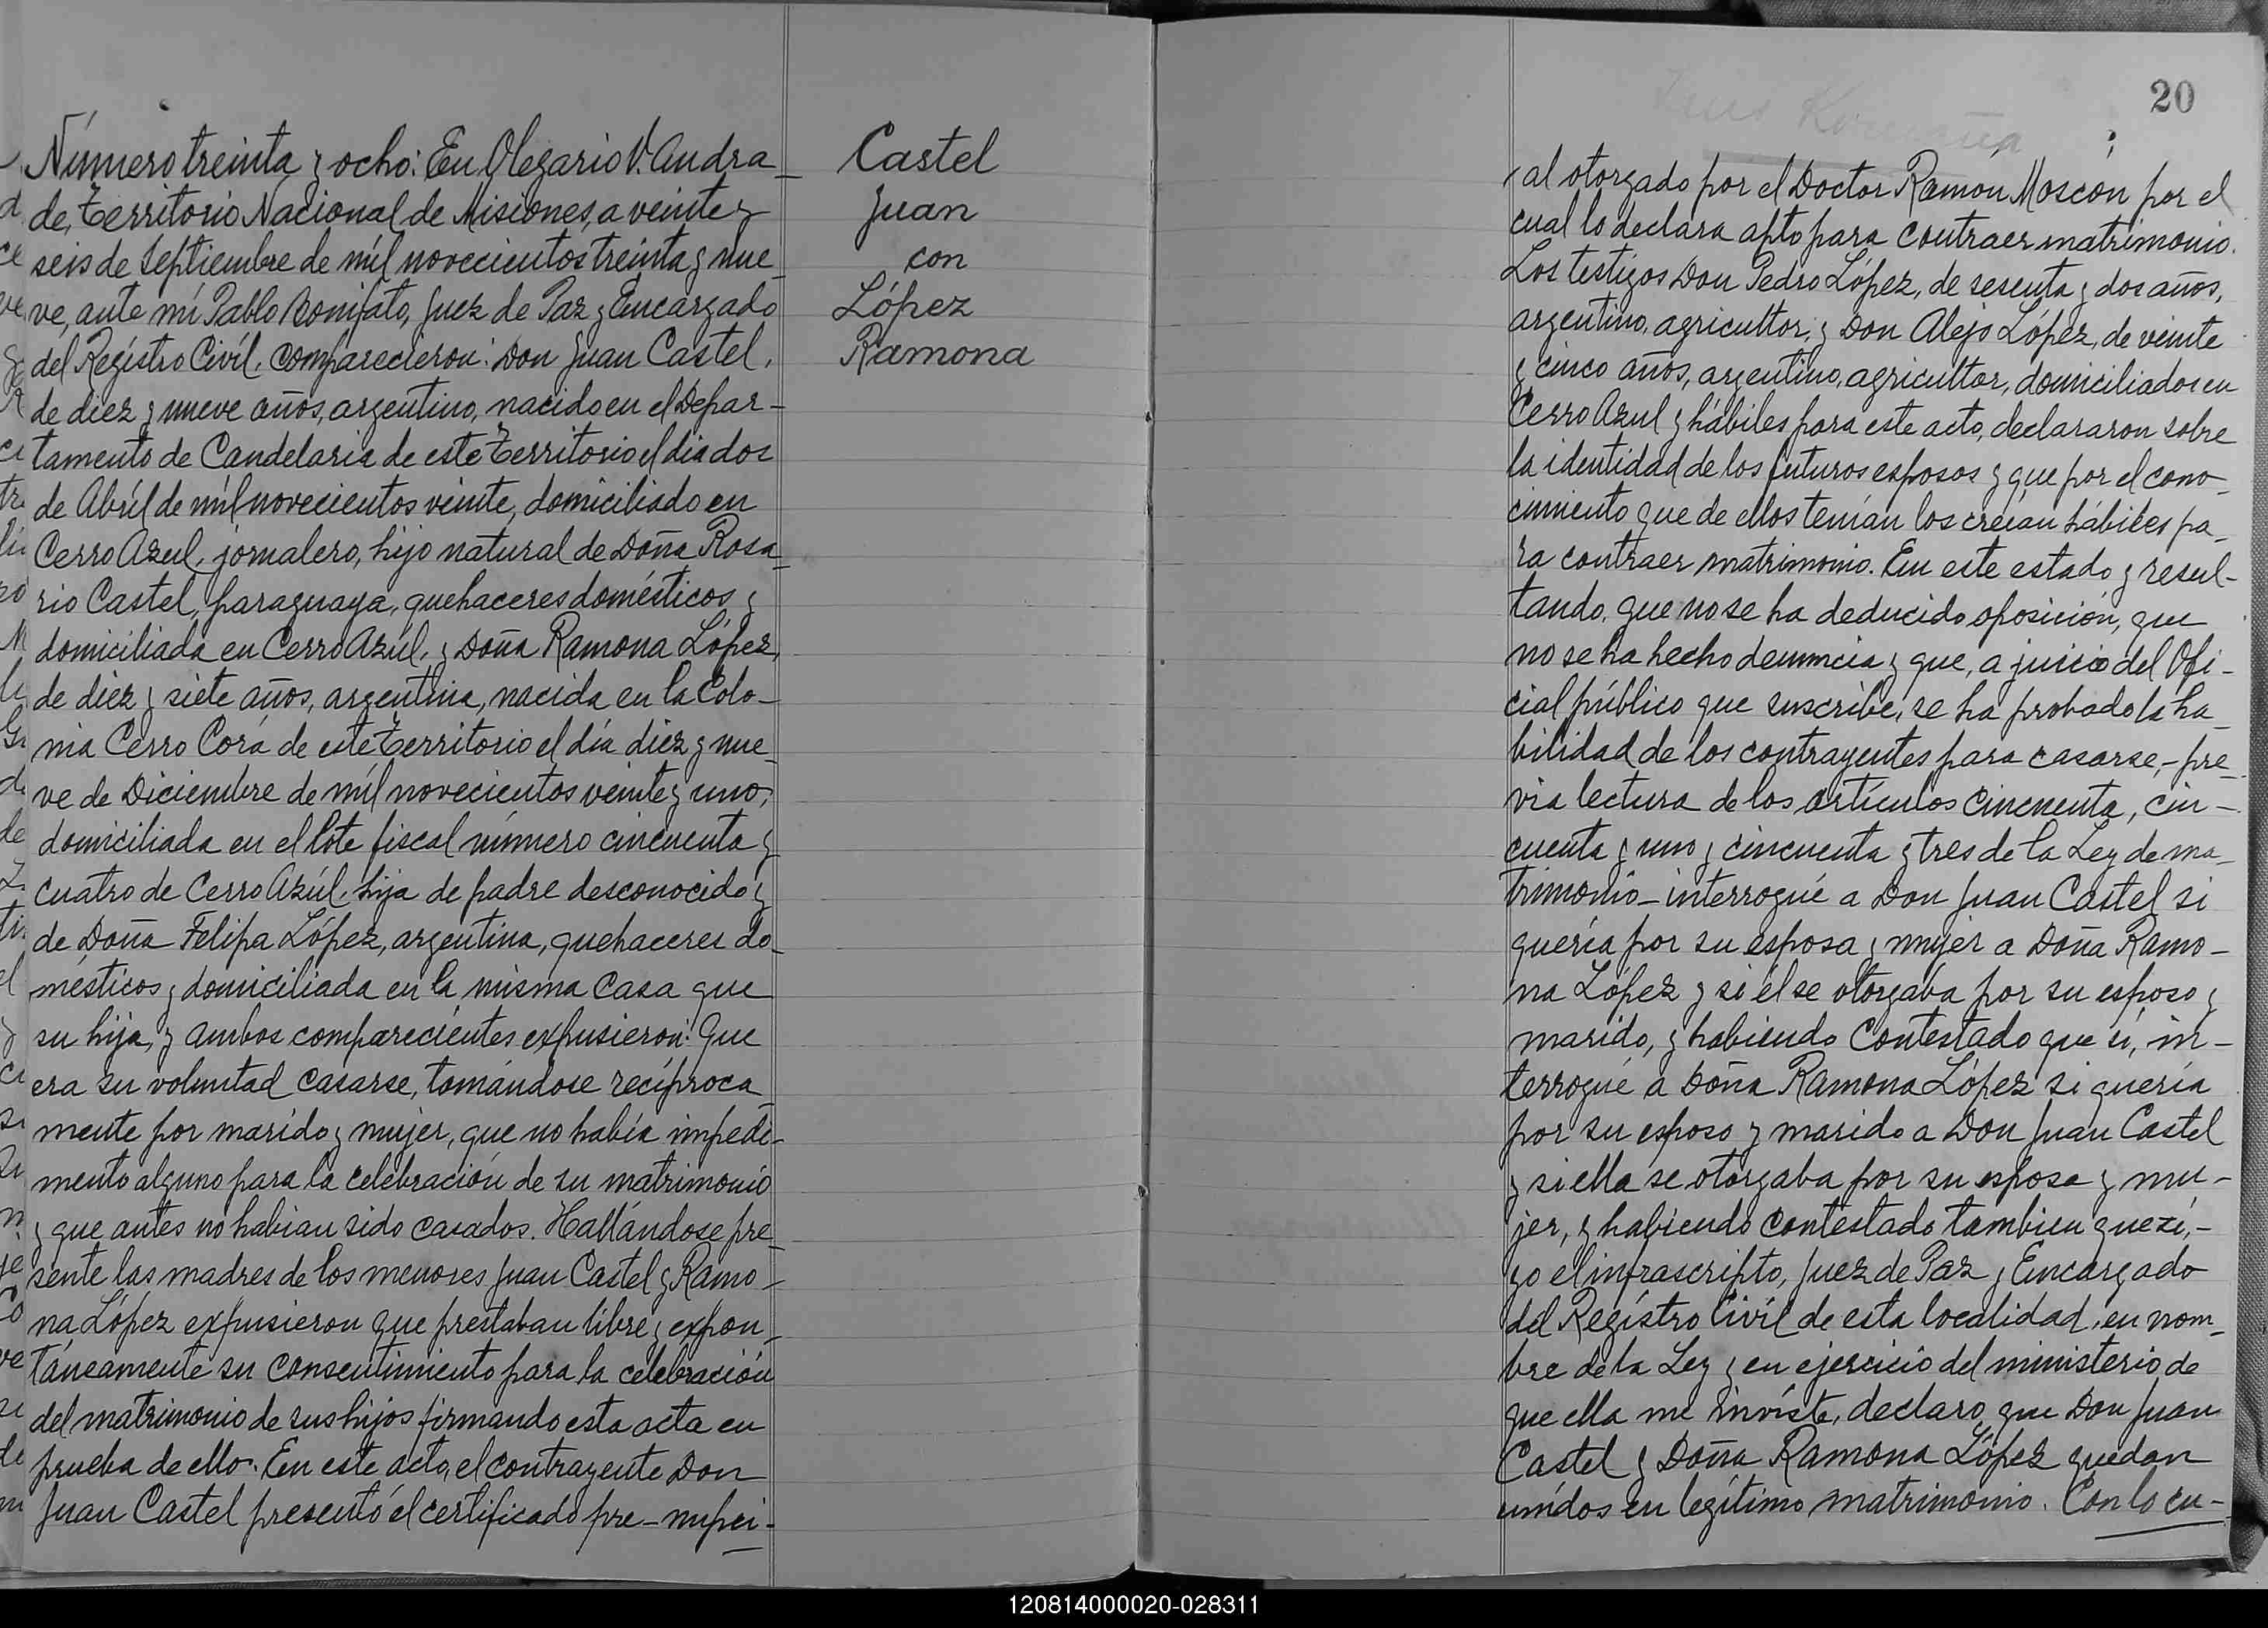 Número treinta y ocho: En Olegario V. Andra-
de, Territorio Nacional de Misiones, a veinte y
seis de Septiembre de mil novecientos treinta y nue-
ve, ante mí Pablo Bonifato, Juez de Paz y Encargado
del Registro Civil, comparecieron: Don Juan Castel,
de diez y nueve años, argentino, nacido en el Depar-
tamento de Candelaria de este Territorio el dia dos
de Abril de mil novecientos veinte, domiciliado en
Cerro Azul, jornalero, hijo natural de Doña Rosa-
rio Castel, paraguaya, quehaceres domésticos y
domiciliada en Cerro Azul, y Doña Ramona López,
de diez y siete años, argentina, nacida en la Colo-
nia Cerro Corá de este Territorio el día diez y nue-
ve de Diciembre de mil novecientos veinte y uno,
domiciliada en el lote fiscal número cincuenta y
cuatro de Cerro Azúl, hija de padre desconocido y
de Doña Felipa López, argentina, quehaceres do-
mésticos y domiciliada en la misma casa que
su hija, y ambos comparecientes expusieron: Que
era su voluntad casarse, tomándose recíproca-
mente por marido y mujer, que no había impedi-
mento alguno para la celebración de su matrimonio
y que antes no habian sido casados. Hallándose pre-
sente las madres de los menores Juan Castel y Ramo-
na López expusieron que prestaban libre y expon-
táneamente su consentimiento para la celebración
del matrimonio de sus hijos firmando esta acta en
prueba de ello. En este acto, el contrayente Don
Juan Castel presentó el certificado pre-nupci-
Castel
Juan
con
López
Ramona
20
al otorgado por el Doctor Ramón Moscón por el
cual lo declara apto para contraer matrimonio.
Los testigos Don Pedro López, de sesenta y dos años,
argentino, agricultor, y Don Alejo López, de veinte
y cinco años, argentino, agricultor, domiciliados en
Cerro Azul y hábiles para este acto, declararon sobre
la identidad de los futuros esposos y que por el cono-
cimiento que de ellos tenían los creían hábiles pa-
ra contraer matrimonio. En este estado y resul-
tando, que no se ha deducido oposición, que
no se ha hecho denuncia y que, a juicio del Ofi-
cial público que suscribe, se ha probado la ha-
bilidad de los contrayentes para casarse,- pre-
via lectura de los artículos cincuenta, cin-
cuenta y uno y cincuenta y tres de la Ley de ma-
trimonio- interrogué a Don Juan Castel si
quería por su esposa y mujer a Doña Ramo-
na López y si él se otorgaba por su esposo y
marido, y habiendo contestado que sí, in-
terrogué a Doña Ramona López si quería
por su esposo y marido a Don Juan Castel
y si ella se otorgaba por su esposa y mu-
jer, y habiendo contestado tambien que sí,-
yo el infrascripto, Juez de Paz y Encargado
del Registro Civil de esta localidad, en nom-
bre de la Ley y en ejercicio del ministerio de
que ella me inviste, declaro que Don Juan
Castel y Doña Ramona López quedan
unidos en legítimo matrimonio. Con lo cu-
120814000020-028311